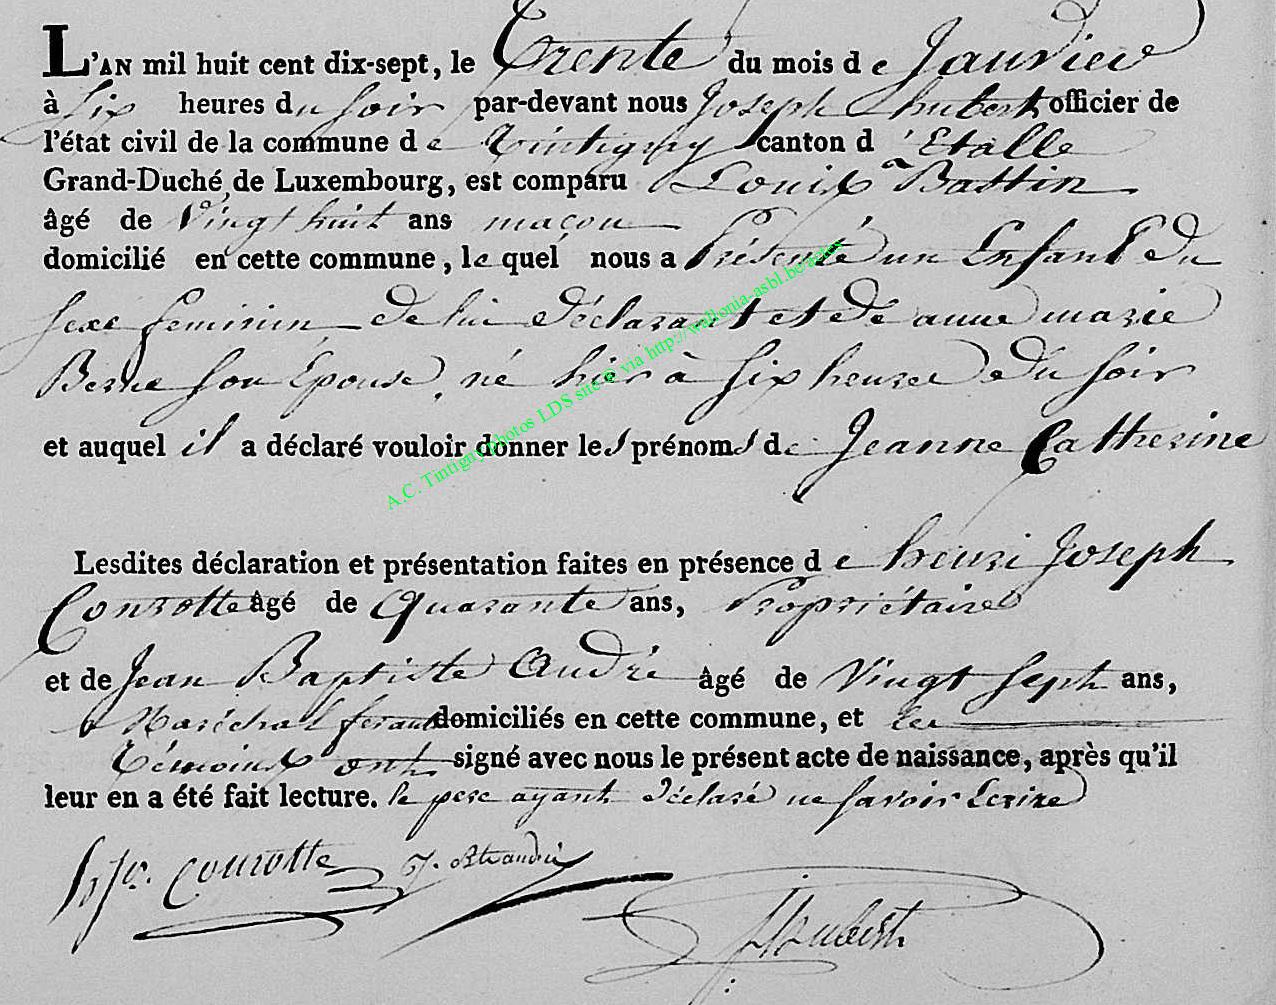 L'AN mil huit cent dix-sept, le Trente du mois de Janvier
à Six heures du soir par-devant nous Joseph hubert officier de
l'état civil de la commune de Tintigny canton d'Etalle
Grand-Duché de Luxembourg, est comparu Louis Bastin
âgé de Vingt huit ans maçon
domicilié en cette commune, le quel nous a Présenté un Enfant Du
sexe feminin de lui déclarant et de anne marie
Berne son Epouse, né hier à six heures du soir
et auquel il a déclaré vouloir donner les prénoms de Jeanne Catherine
A.C. Tintigny photos LDS site © via http://wallonia-asbl.be/actes
Lesdites déclaration et présentation faites en présence de henri Joseph
Conrotte âgé de Quarante ans, Propriétaire
et de Jean Baptiste André âgé de Vingt sept ans,
Maréchal ferant domiciliés en cette commune, et les
Témoins ont signé avec nous le présent acte de naissance, après qu'il
leur en a été fait lecture. le pere ayant déclaré ne savoir Ecrire
h. jo. conrotte J. Bt andré
J hubert